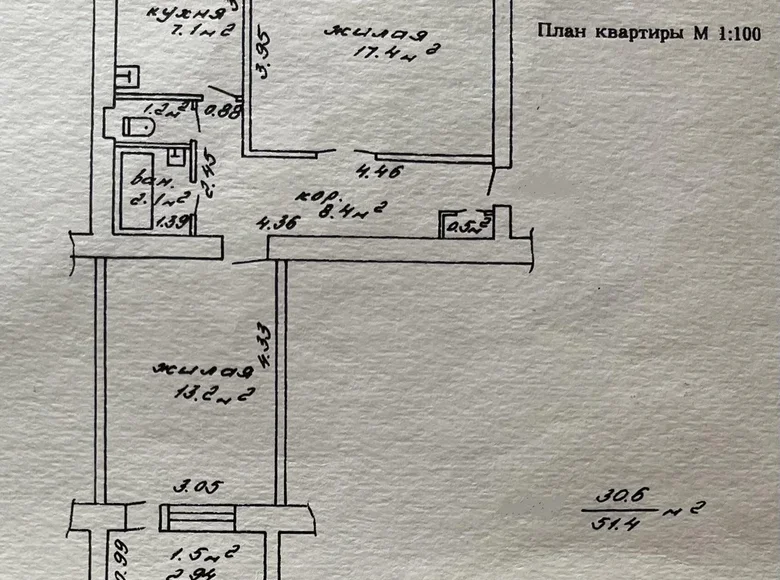 План квартиры М 1:100
кухня
7.1м²
жилая
17.4м²
3.95
1.2м²
0.88
2.45
ван.
2.1м²
1.39
4.46
кор.
8.4м²
4.36
0.5м²
4.33
жилая
13.2м²
3.05
30.6
51.4 м²
0.99
1.5м²
2.94